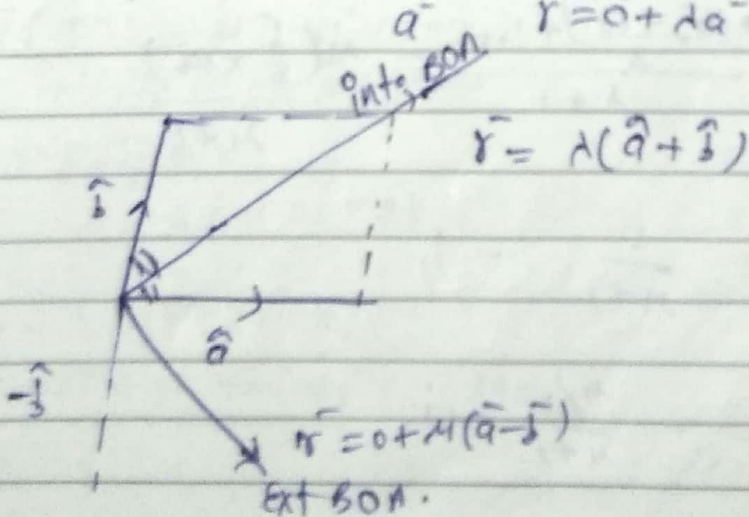 a̅ r̅ = 0 + λa̅
int. BOA
r̅ = λ(â + b̂)
b̂
â
-b̂
r̅ = 0 + μ(a̅ - b̅)
Ext BOA.